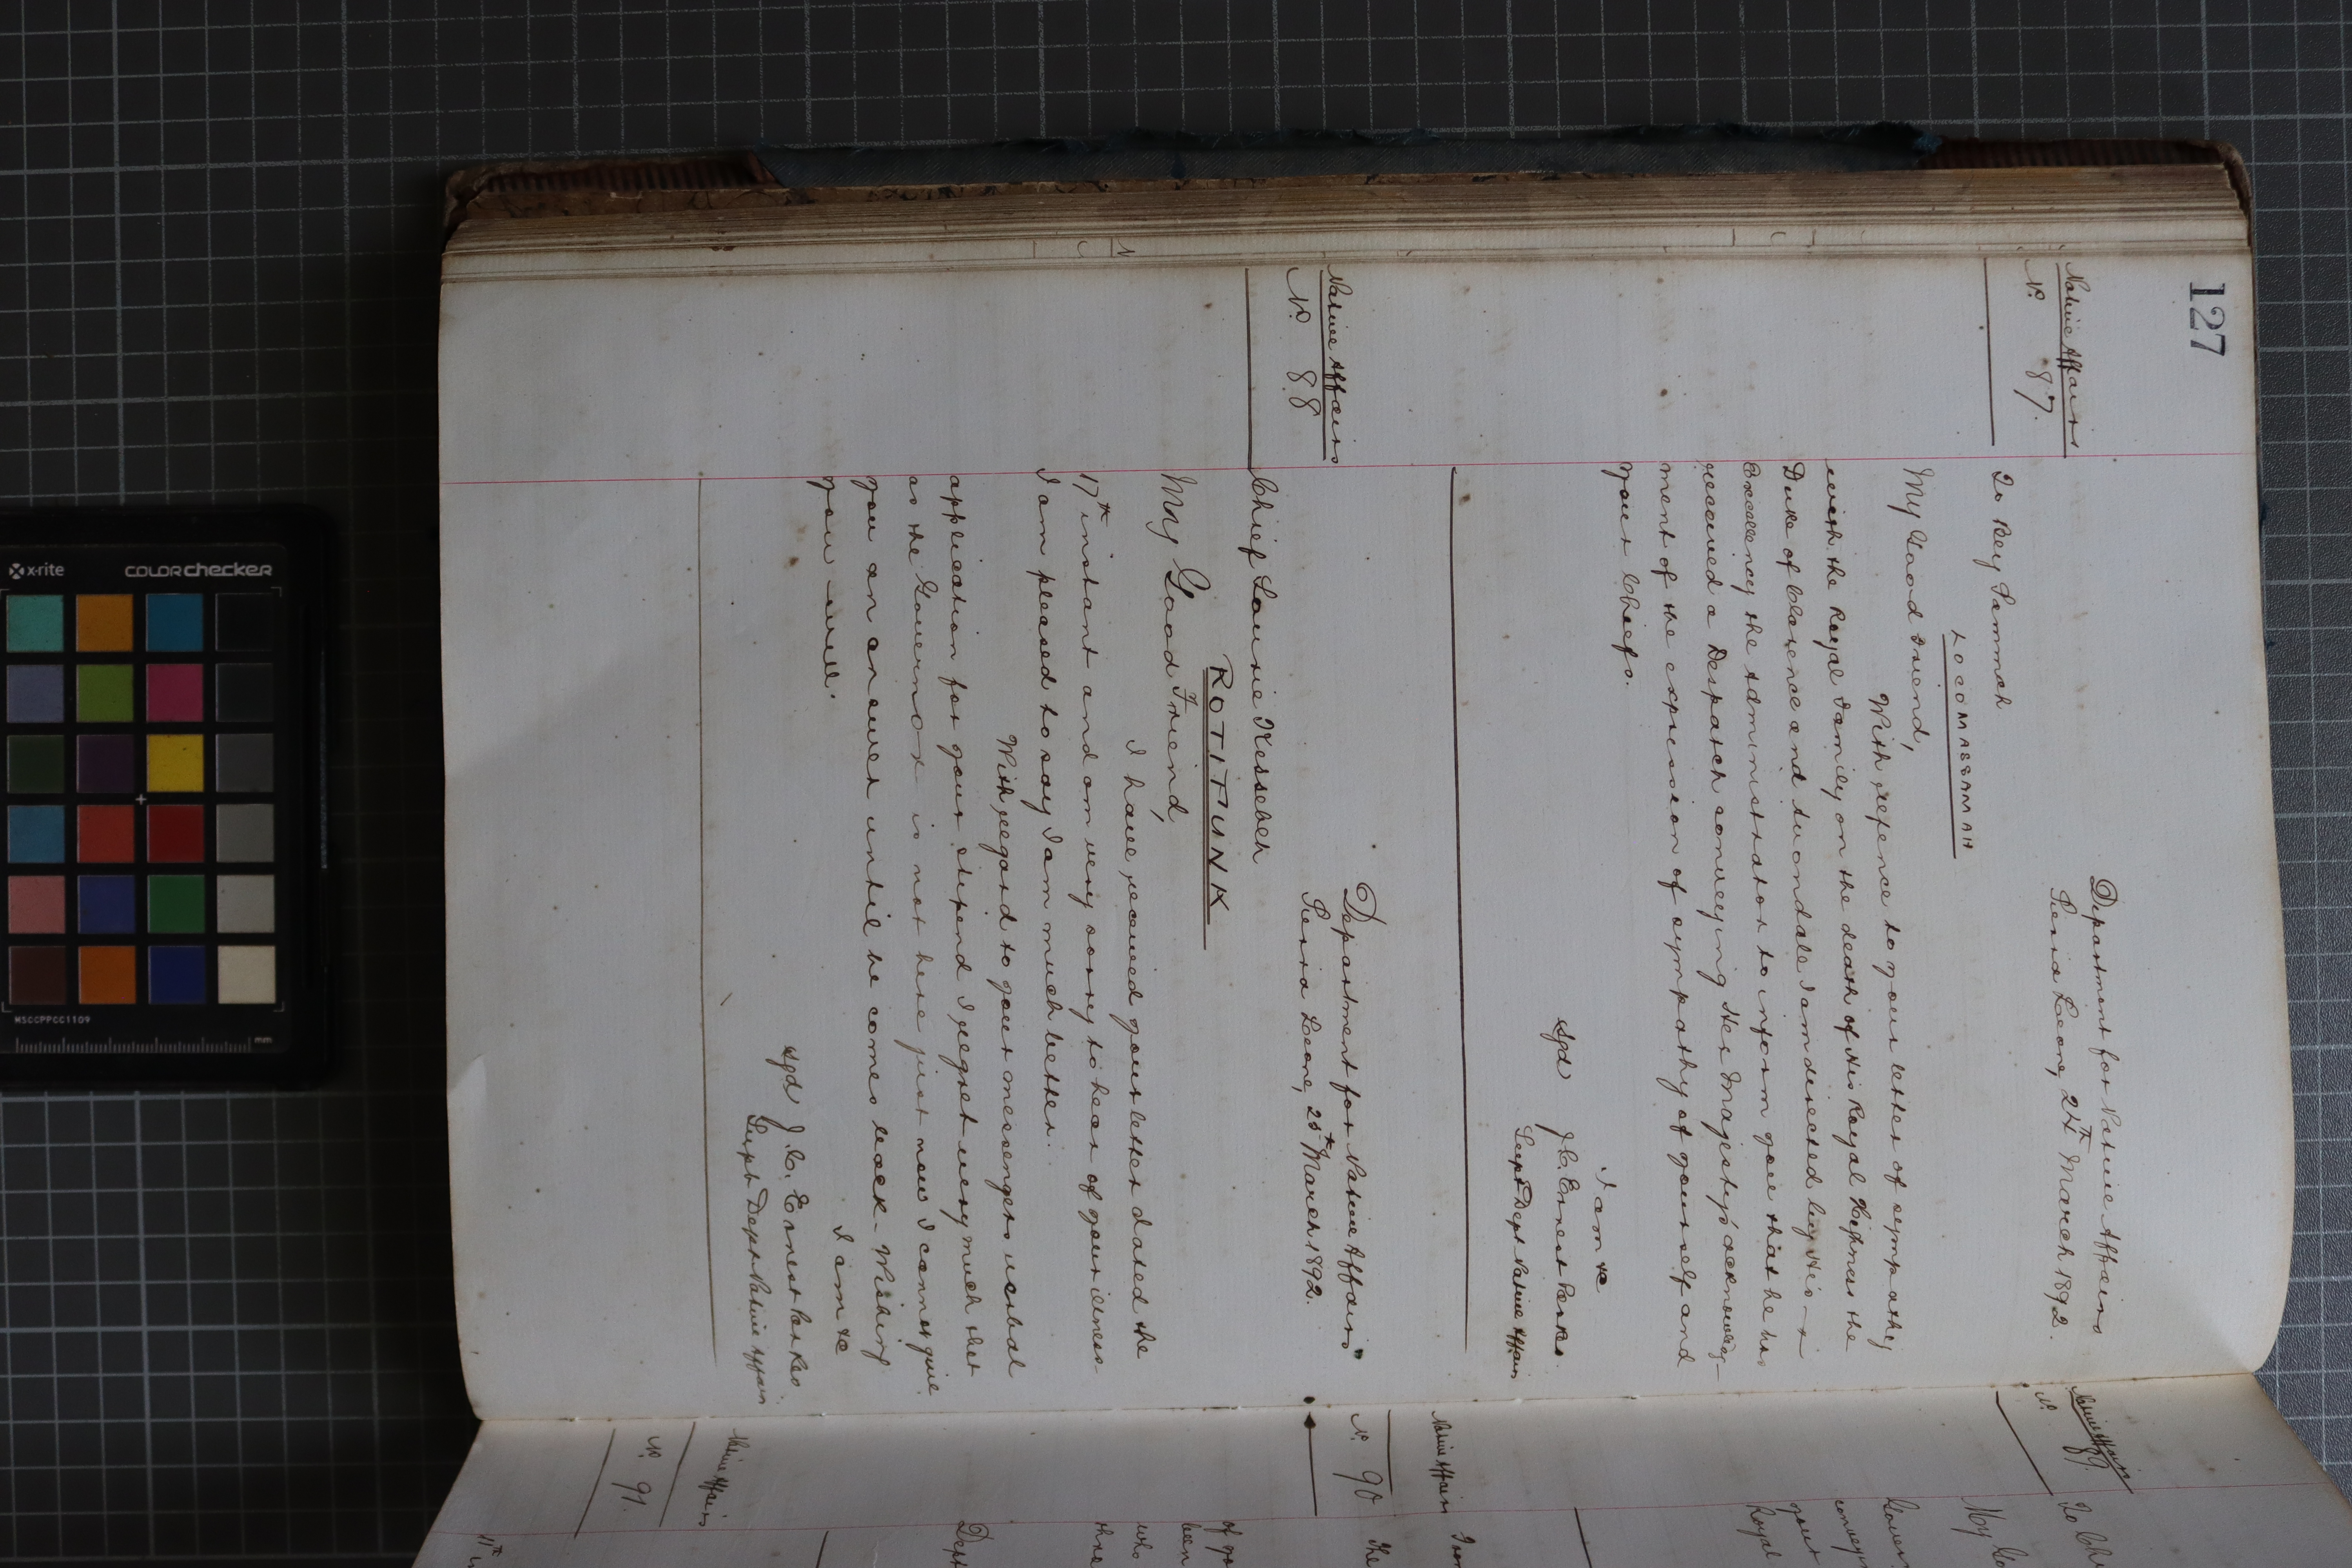 127
Native Affairs
No. 87.
Department for Native Affairs
Sierra Leone, 24th March 1892.
To Bey Sammah
LOCOMASSAMAH
My Good Friend,
With refence to your letter of sympathy
with the Royal Family on the death of His Royal Highness the
Duke of Clarence and Avondale I am directed by His
Excellency the Administrator to inform you that he has
received a Despatch conveying Her Majesty's acknowledg-
ment of the expression of sympathy of yourself and
your Chiefs.
I am &c
sgd J. C. Ernest Parkes.
Supt Dept Native Affairs
Native Affairs
No. 88
Department for Native Affairs
Sierra Leone, 25th March 1892.
Chief Sourie Kessebeh
ROTIFUNK
My Good Friend,
I have received your letter dated the
17th instant and am very sorry to hear of your illness-
I am pleased to say I am much better.
With regard to your messengers verbal
application for your stipend I regret very much that
as the Governor is not here just now I cannot give
you an answer until he comes back - Wishing
you well.
I am &c
sgd J. C. Ernest Parkes
Supt Dept Native Affairs
Native Affairs
No. 89.
To Chi
My Go
conveyi
your
Royal
Native Affairs
No. 90
The
of yo
been
who
three
Dept
Native Affairs
No. 91.
11th
x-rite
colorchecker
MSCCPPCC1109
mm